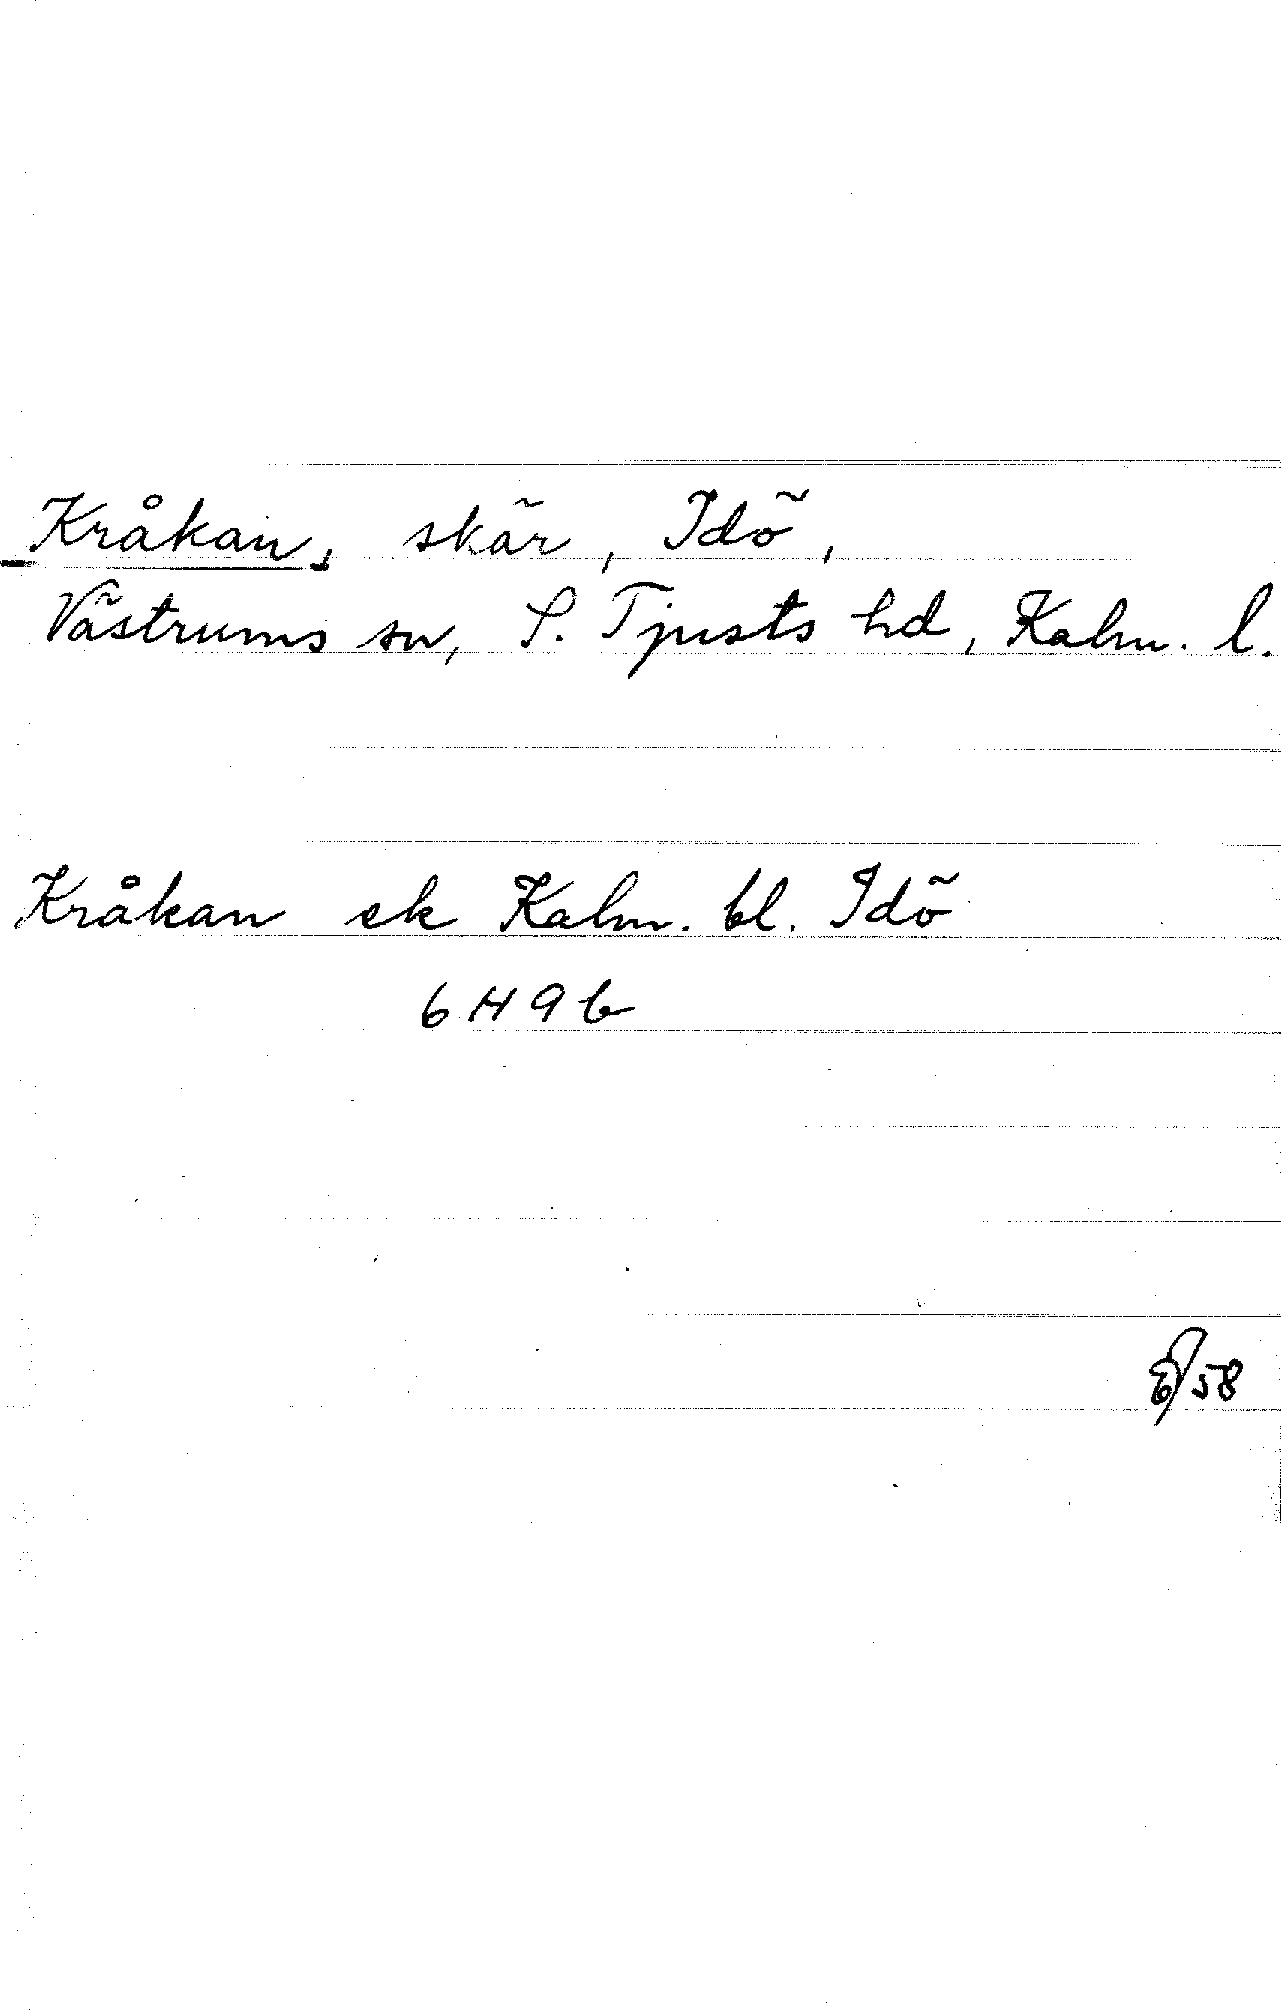 Kråkan, skär, Idö,
Västrums sn, S. Tjusts hd, Kalm. l.
Kråkan ek Kalm. bl. Idö
6H9b
58